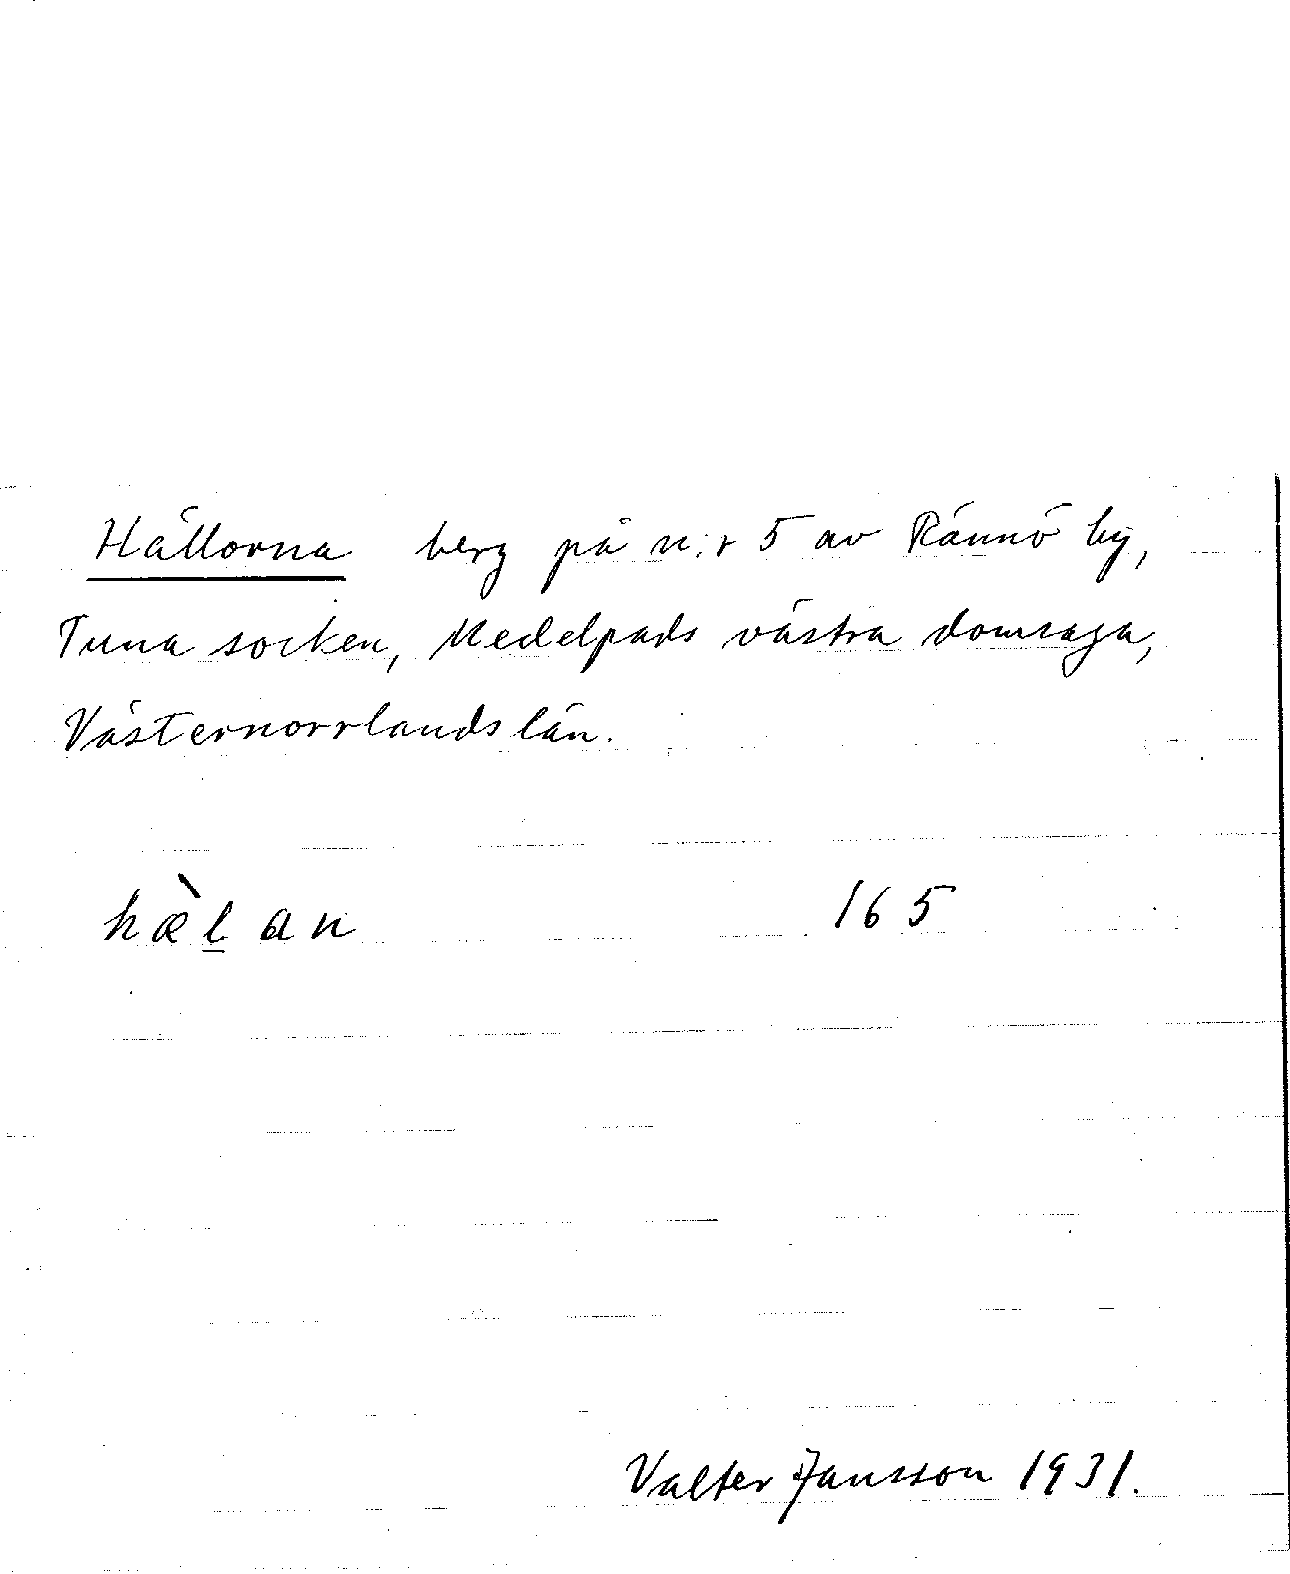 Hällorna berg på n:r 5 av Rännö by,
Tuna socken, Medelpads västra domsaga,
Västernorrlands län.
hæ̀l̲an 165
Valter Jansson 1931.